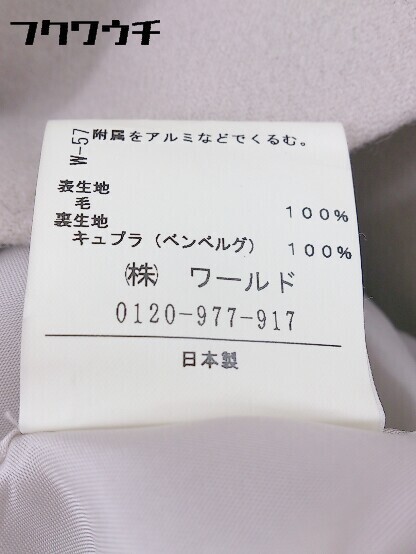 フクワウチ
W-57
附属をアルミなどでくるむ。
表生地
毛 100%
裏生地
キュプラ（ベンベルグ） 100%
㈱ ワールド
0120-977-917
日本製